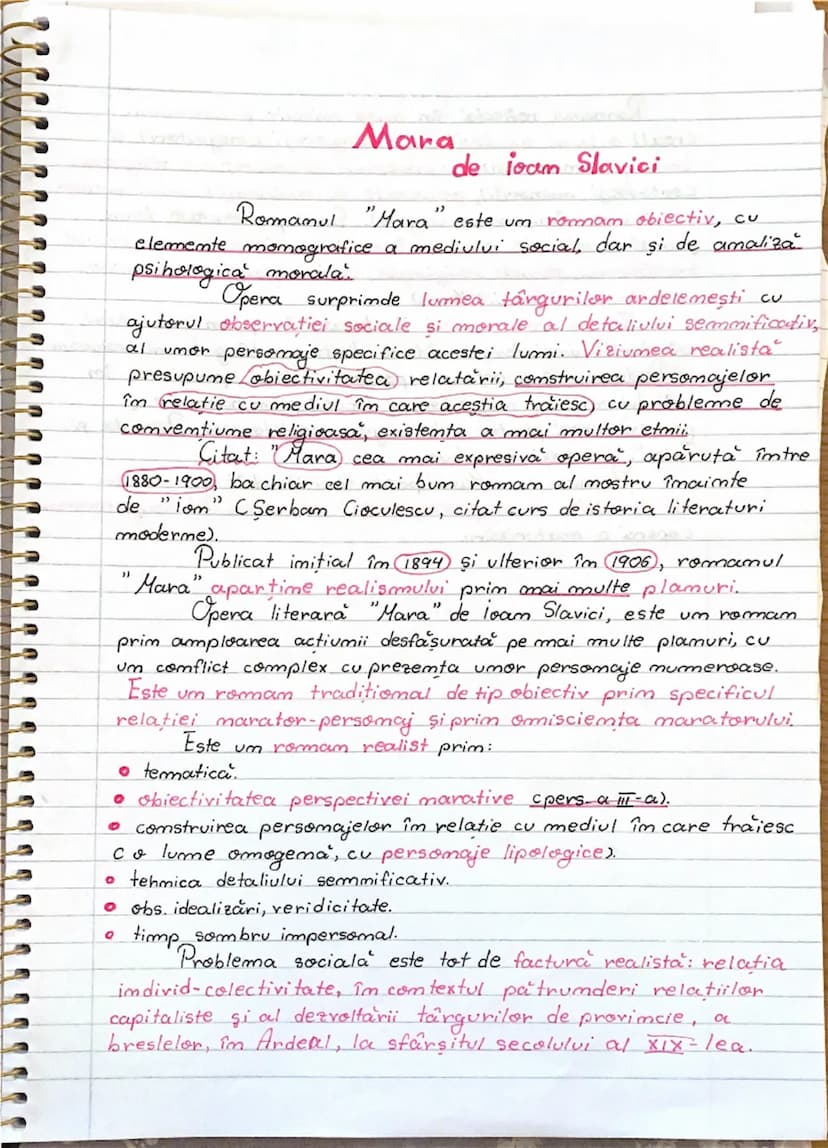 Mara
de ioan Slavici
Romanul "Mara" este un roman obiectiv, cu
elemente monografice a mediului social, dar și de analiză
psihologică morală.
Opera surprinde lumea târgurilor ardelenești cu
ajutorul observației sociale și morale al detaliului semnificativ,
al unor personaje specifice acestei lumi. Viziunea realistă
presupune obiectivitatea relatării, construirea personajelor
în relație cu mediul în care aceștia trăiesc cu probleme de
convențiune religioasă, existența a mai multor etnii.
Citat: "Mara cea mai expresivă operă, apărută între
1880-1900, ba chiar cel mai bun roman al nostru înainte
de "ion" (Șerban Cioculescu, citat curs de istoria literaturi
moderne).
Publicat inițial în 1894 și ulterior în 1906, romanul
"Mara" aparține realismului prin mai multe planuri.
Opera literară "Mara" de ioan Slavici, este un roman
prin amploarea acțiunii desfășurată pe mai multe planuri, cu
un conflict complex cu prezența unor personaje numeroase.
Este un roman tradițional de tip obiectiv prin specificul
relației narator-personaj și prin omisciența naratorului.
Este un roman realist prim:
• tematică.
• obiectivitatea perspectivei narative (pers. a III-a).
• construirea personajelor în relație cu mediul în care trăiesc
(o lume omogenă, cu personaje lipologice).
• tehnica detaliului semnificativ.
• obs. idealizări, veridicitate.
• timp sombru impersonal.
Problema socială este tot de factură realistă: relația
individ-colectivitate, în contextul pătrunderi relațiilor
capitaliste și al dezvoltării târgurilor de provincie, a
breslelor, în Ardeal, la sfârșitul secolului al XIX-lea.